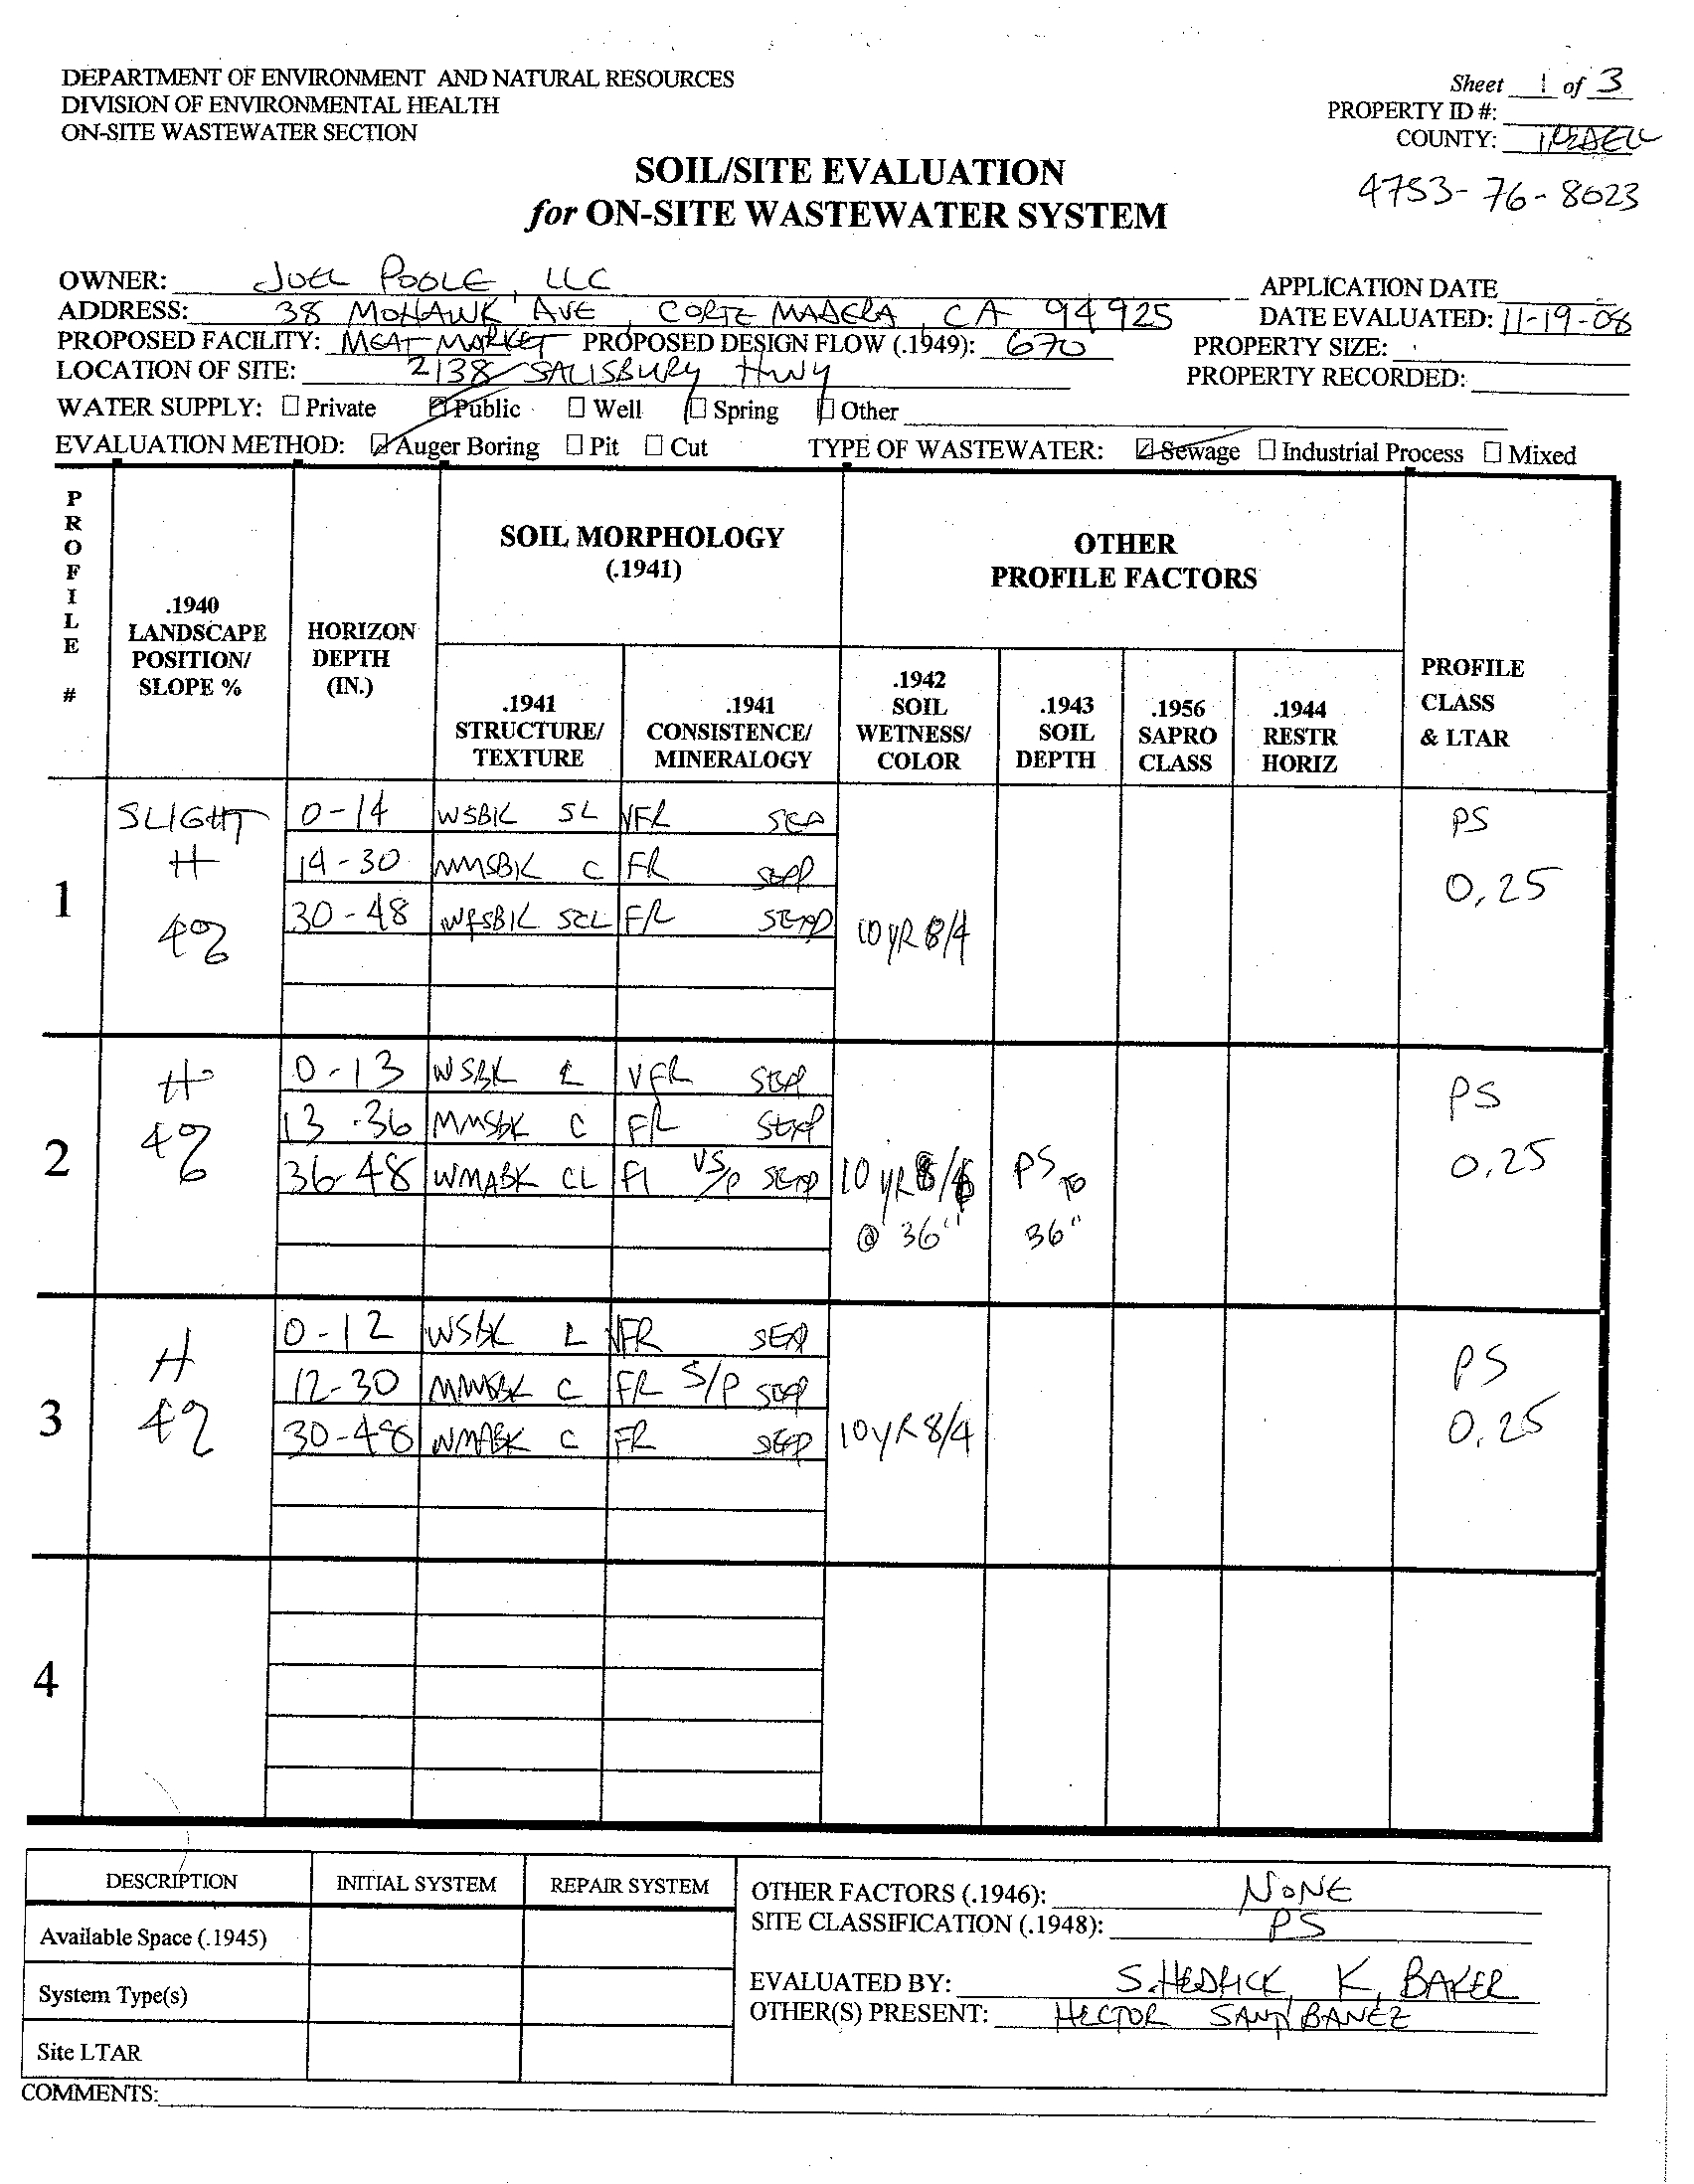 DEPARTMENT OF ENVIRONMENT AND NATURAL RESOURCES
DIVISION OF ENVIRONMENTAL HEALTH
ON-SITE WASTEWATER SECTION
Sheet 1 of 3
PROPERTY ID #:
COUNTY: IREDELL
SOIL/SITE EVALUATION
for ON-SITE WASTEWATER SYSTEM
4753-76-8023
OWNER: JOEL POOLE, LLC
APPLICATION DATE
ADDRESS: 38 MOHAWK AVE, CORTE MADERA, CA 94925
DATE EVALUATED: 11-19-08
PROPOSED FACILITY: MEAT MARKET PROPOSED DESIGN FLOW (.1949): 670
PROPERTY SIZE:
LOCATION OF SITE: 2138 SALISBURY HWY
PROPERTY RECORDED:
WATER SUPPLY: ☐ Private ☑ Public ☐ Well ☐ Spring ☐ Other
EVALUATION METHOD: ☑ Auger Boring ☐ Pit ☐ Cut TYPE OF WASTEWATER: ☑ Sewage ☐ Industrial Process ☐ Mixed
PROFILE #
.1940 LANDSCAPE POSITION/ SLOPE %
HORIZON DEPTH (IN.)
SOIL MORPHOLOGY (.1941)
.1941 STRUCTURE/ TEXTURE
.1941 CONSISTENCE/ MINERALOGY
OTHER PROFILE FACTORS
.1942 SOIL WETNESS/ COLOR
.1943 SOIL DEPTH
.1956 SAPRO CLASS
.1944 RESTR HORIZ
PROFILE CLASS & LTAR
1
SLIGHT H 4%
0-14 WSBK SL VFR
14-30 MMSBK C FR
30-48 WFSBK SCL FR
10YR 8/4
PS
0.25
2
H 4%
0-13 WSBK L VFR
13-36 MMSBK C FR
36-48 WMABK CL FI VS/P
10YR
@ 36"
PS TO 36"
PS
0.25
3
H 4%
0-12 WSBK L VFR
12-30 MMSBK C FR S/P
30-48 WMABK C FR
10YR 8/4
PS
0.25
4
DESCRIPTION INITIAL SYSTEM REPAIR SYSTEM
Available Space (.1945)
System Type(s)
Site LTAR
OTHER FACTORS (.1946): NONE
SITE CLASSIFICATION (.1948): PS
EVALUATED BY: S. HEDRICK, K. BAKER
OTHER(S) PRESENT: HECTOR SANTIBANEZ
COMMENTS: